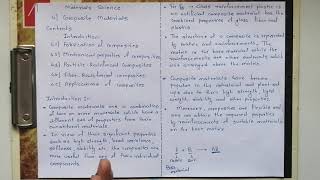 Materials Science
4) Composite Materials
Contents
Introduction:
4.1) Fabrication of Composites
4.2) Mechanical properties of Composites
4.3) Particle-Reinforced Composites
4.4) Fiber-Reinforced Composites
4.5) Applications of Composites
Introduction :-
Composite materials are a combination
of two or more materials which have a
different set of properties from their
constituent materials.
In view of their significant properties
such as high strength, heat resistance,
stiffness, stability etc, the composites are
more useful than any of their individual
components.
Glass reinforcement plastic is
an artificial composite which has the
combined properties of glass fiber and
plastic.
The structure of a composite is separated
by matrix and reinforcements. The
matrix is the base material while the
reinforcements are other materials which
are arranged above the matrix.
Composite materials have become
popular in the industrial and
due to their high strength, light
weight, durability and other properties.
Moreover, composites are flexible and
one can obtain the required properties
by reinforcements of suitable materials
on the base matrix
A + B → AB
matrix
material